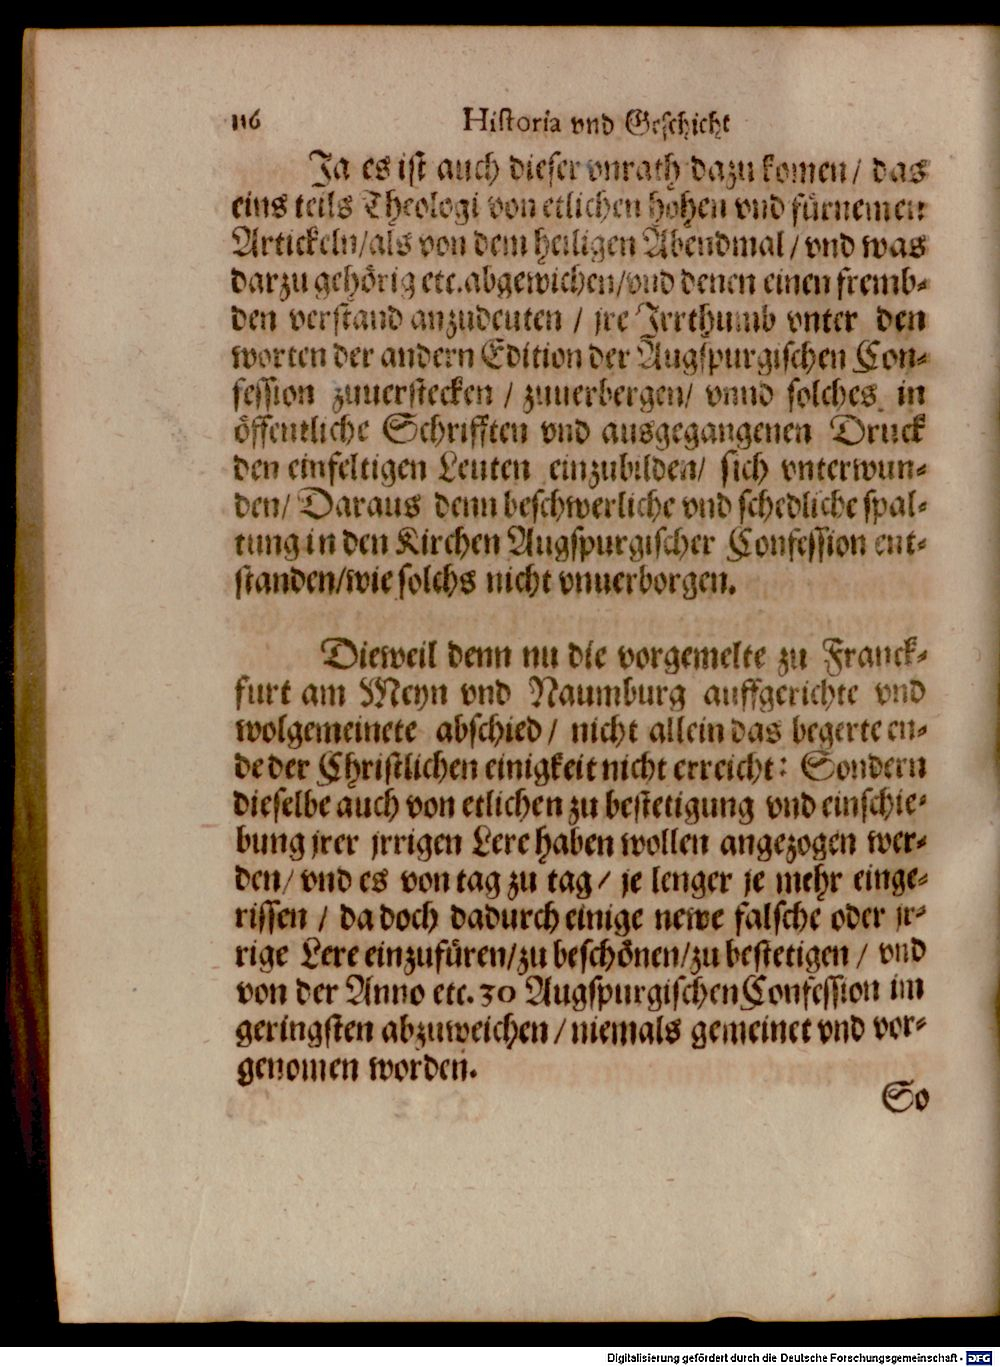 116 Historia vnd Geschicht
Ja es ist auch dieser vnrath dazu komen / das
eins teils Theologi von etlichen hohen vnd fürnemen
Artickeln / als von dem heiligen Abendmal / vnd was
darzu gehörig etc. abgewichen / vnd denen einen fremb-
den verstand anzudeuten / jre Irrthumb vnter den
worten der andern Edition der Augspurgischen Con-
fession zuuerstecken / zuuerbergen / vnnd solches in
öffentliche Schrifften vnd ausgegangenen Druck
den einfeltigen Leuten einzubilden / sich vnterwun-
den / Daraus denn beschwerliche vnd schedliche spal-
tung in den Kirchen Augspurgischer Confession ent-
standen / wie solchs nicht vnuerborgen.
Dieweil denn nu die vorgemelte zu Franck-
furt am Meyn vnd Naumburg auffgerichte vnd
wolgemeinete abschied / nicht allein das begerte en-
de der Christlichen einigkeit nicht erreicht: Sondern
dieselbe auch von etlichen zu bestetigung vnd einschie-
bung jrer jrrigen Lere haben wollen angezogen wer-
den / vnd es von tag zu tag / je lenger je mehr einge-
rissen / da doch dadurch einige newe falsche oder jr-
rige Lere einzufüren / zu beschönen / zu bestetigen / vnd
von der Anno etc. 30 Augspurgischen Confession im
geringsten abzuweichen / niemals gemeinet vnd vor-
genomen worden.
So
Digitalisierung gefördert durch die Deutsche Forschungsgemeinschaft - DFG